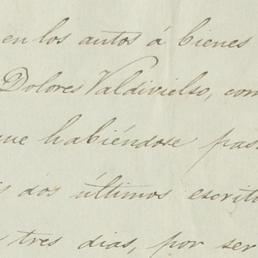 en los autos á bienes
Dolores Valdivielso, com
que habiéndose pas
s dos últimos escrito
tres dias, por ser